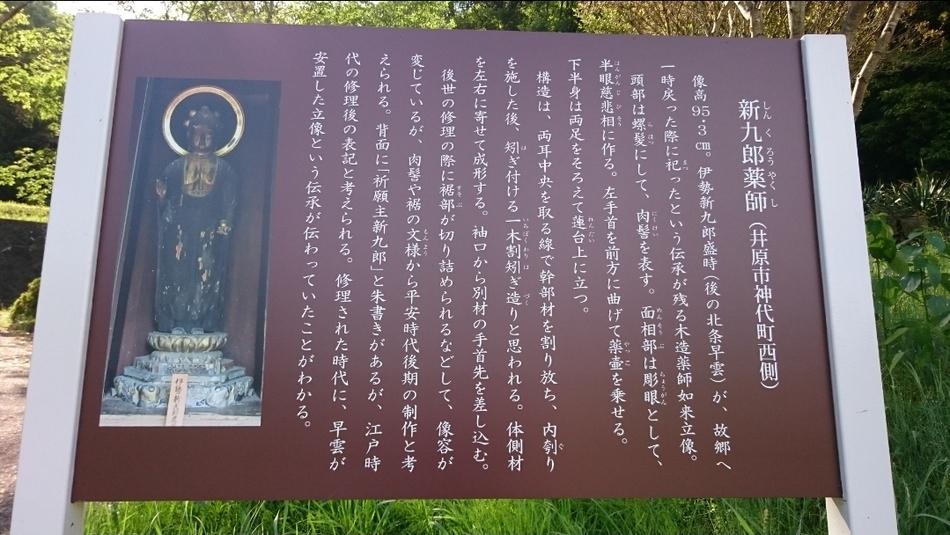 新九郎薬師（井原市神代町西側）
像高95.3㎝。伊勢新九郎盛時（後の北条早雲）が、故郷へ
一時戻った際に祀ったという伝承が残る木造薬師如来立像。
頭部は螺髪にして、肉髻を表す。面相部は彫眼として、
半眼慈悲相に作る。左手首を前方に曲げて薬壷を乗せる。
下半身は両足をそろえて蓮台上に立つ。
構造は、両耳中央を取る線で幹部材を割り放ち、内刳り
を施した後、矧ぎ付ける一木割矧ぎ造りと思われる。体側材
を左右に寄せて成形する。袖口から別材の手首先を差し込む。
後世の修理の際に裾部が切り詰められるなどして、像容が
変じているが、肉髻や裾の文様から平安時代後期の制作と考
えられる。背面に「祈願主新九郎」と朱書きがあるが、江戸時
代の修理後の表記と考えられる。修理された時代に、早雲が
安置した立像という伝承が伝わっていたことがわかる。